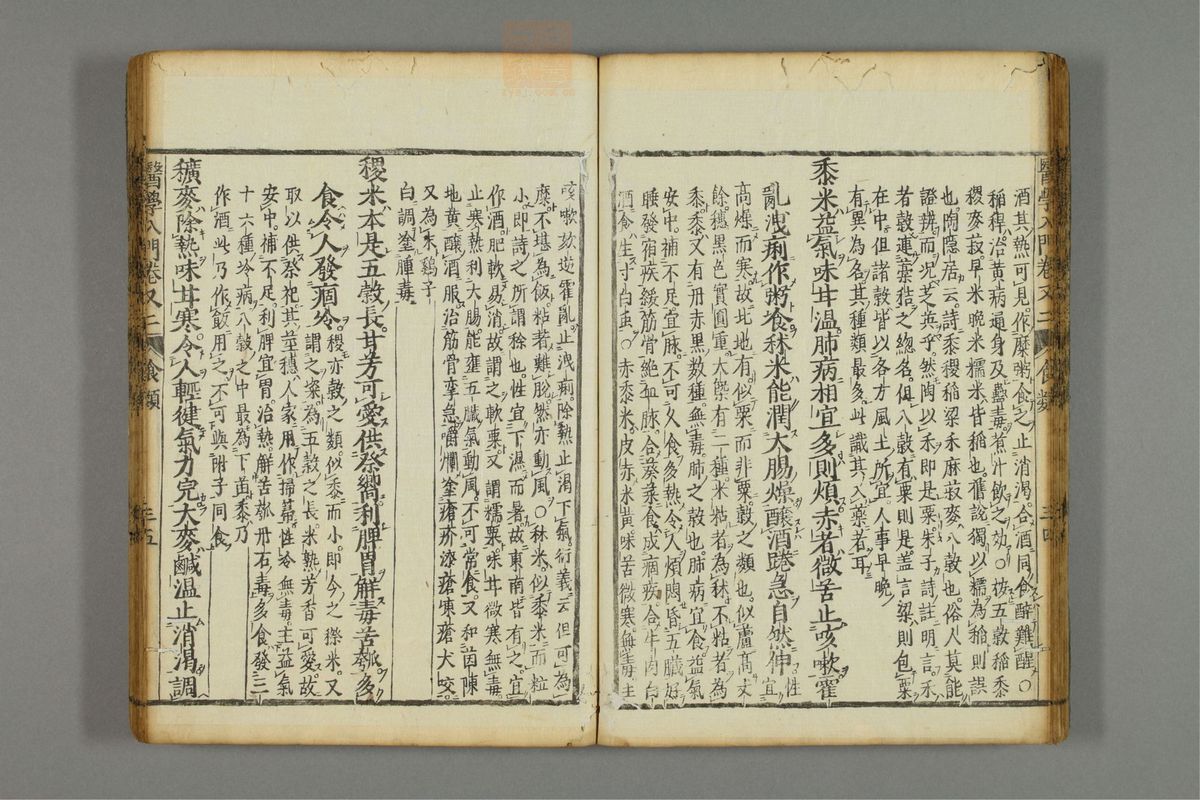 醫學入門卷又二 食類 三四
酒其熱可見作糜粥食之止消渴合酒同食醉難醒○
稻稈治黃病通身及蠱毒煮汁飲之効○按五穀稻黍
稷麥菽早米晚米糯米皆稻也舊說獨以糯為稻則誤
也陶隱居云詩黍稷稻粱禾麻菽麥八穀也俗人莫能
證辨而况芝英乎然陶以禾即是粟朱子詩註明言禾
者穀連藁秸之總名但八穀有粟則是盖言粱則包粟
在中但諸穀皆以各方風土所宜人事早晚
有異為名其種類最多此識其入藥者耳
黍米益氣味甘温肺病相宜多則煩赤者微苦止咳嗽霍
亂洩痢作粥飡秫米能潤大腸燥釀酒踡急自然伸 性宜
高燥而寒故北地有似粟而非粟穀之類也似蘆高丈
餘穗黑色實圓重大槩有二種米粘者為秫不粘者為
黍黍又有丹赤黑數種無毒肺之穀也肺病宜食益氣
安中補不足宜脉不可久食多熱令人煩悶昏五臟好
睡發宿疾緩筋骨絕血脉合葵菜食成痼疾合牛肉白
酒食生寸白虫○赤黍米皮赤米黃味苦微寒無毒主
咳嗽欬逆霍亂止洩痢除熱止渴下氣衍義云但可為
糜不堪為飯粘者難脫然亦動風○秫米似黍米而粒
小即詩之所謂稌也性宜下濕而暑故東南皆有之宜
作酒肥軟易消故謂之軟粟又謂糯粟味甘微寒無毒
止寒熱利大腸能壅五臟氣動風不可常食又和茵陳
地黃釀酒服治筋骨攣急嚼爛塗瘡疥漆瘡凍瘡犬咬
又為末鷄子
白調塗腫毒
稷米本是五穀長甘芳可愛供祭饗利脾胃解毒苦瓠多
食令人發痼冷 稷亦穀之類似黍而小即今之穄米又
謂之粢為五穀之長米熟芳香可愛故
取以供祭祀其莖穗人家用作掃箒性冷無毒主益氣
安中補不足利脾宜胃治熱解苦瓠丹石毒多食發三
十六種冷病八穀之中最為下苗黍乃
作酒此乃作飯用之不可與附子同食
穬麥除熱味甘寒令人輕徤氣力完大麥鹹温止消渴調
醫學入門卷又二 食類 三五